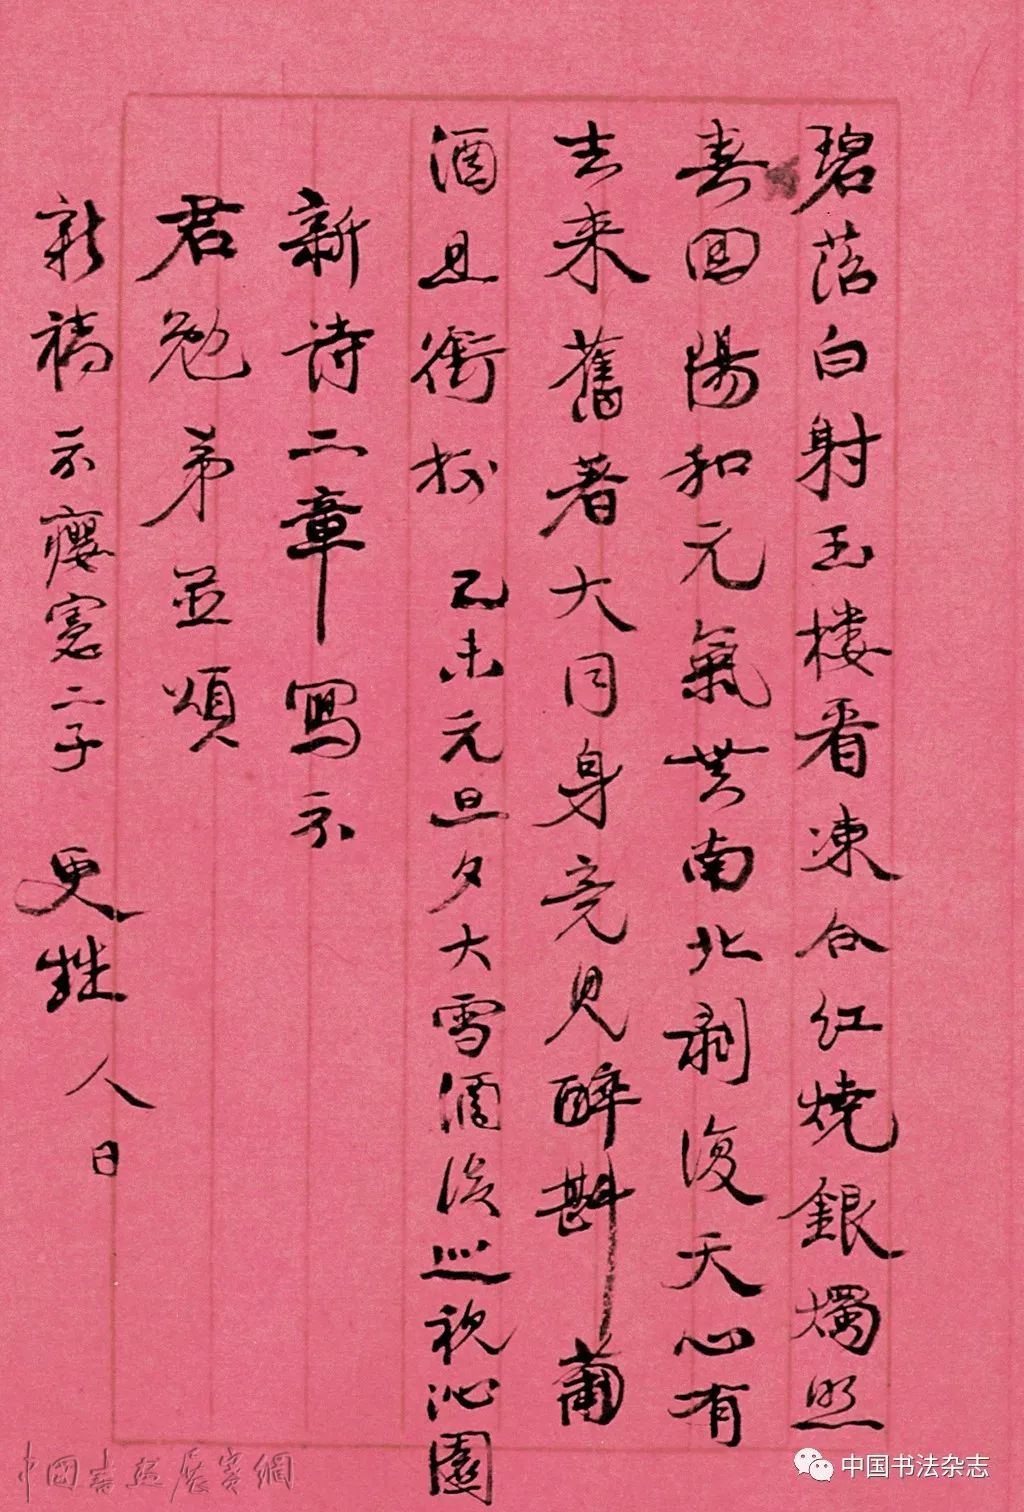 碧落白射玉楼看凍合紅燒銀燭照
春回陽和元氣共南北剥復天心有
去来舊著大同身竟見醉斟葡
酒且銜杯 乙未元旦夕大雪酒後巡視沁園
新詩二章寫示
君勉弟並頌
新禧示癭二子 更甡 人日
中國書畫展賽網
中国书法杂志